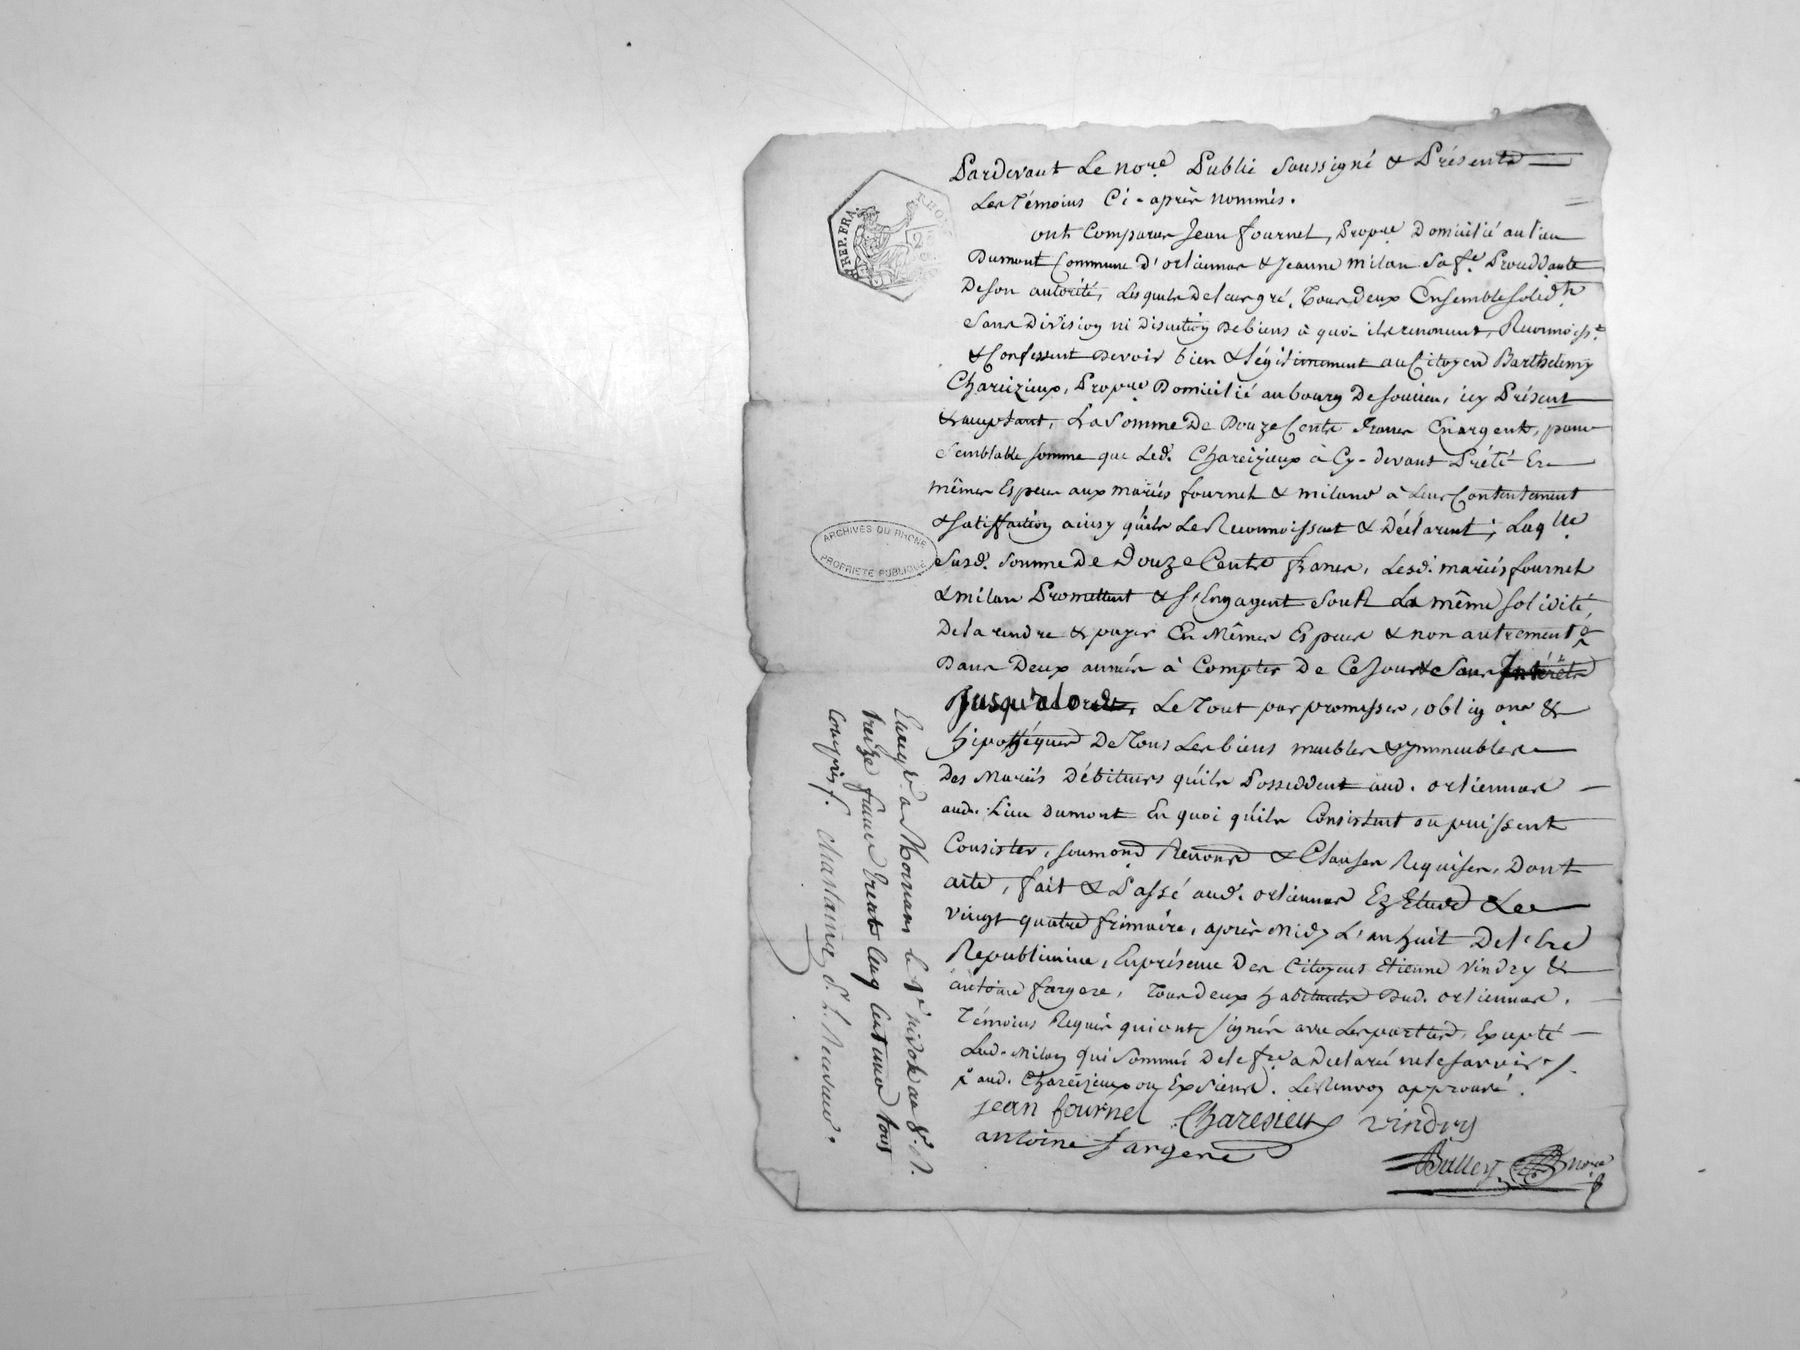 REP. FRA.
Pardevant Le no.re Public soussigné & Présents
Les Témoins Ci-après nommés.
ont Comparus Jean fournel, Propre. Domicilié au lieu
Dumont Commune d'orliennas & Jeanne milan sa fe. Procédante
De son autorité, Lesquels de leur gré, Tous deux Ensemble solidt.
sans Division ni Discution de biens à quoi ils renoncent, Reconnoisst.
& Confessent devoir bien & légitimement au Citoyen Barthelemy
Chareizieux, Propre. Domicilié au bourg de soucieu, icy Présent
& acceptant, La somme De Douze Cents francs En argent, pour
semblable somme que Led. Chareizieux à Cy-devant Prêté En
mêmes Espèces aux mariés fournel & milan à Leur Contentement
& satisfaction ainsy qu'ils Le Reconnoissent & Déclarent; Laqlle.
susd. somme De Douze Cents francs, Lesd. mariés fournel
& milan Promettent & s'Engagent sous La même solidité,
De la rendre & payer En Mêmes Espèces & non autrement
Dans Deux années à Compter De Ce jour & sans Intérêts
Jusqu'alors, Le Tout par promesses, obligons &
hipothéques De Tous Les biens meubles & ymmeubles
Des Mariés Débiteurs qu'ils Posseddent aud. orliennas
aud. Lieu Dumont En quoi qu'ils Consistent ou puissent
Consister, soumons Renons & Clauses Requises, Dont
acte, fait & Passé aud. orliennas Ez Etude Le
vingt quatre frimaire, après Midy L'an huit De l'Ere
Republicaine, En présence Des Citoyens Etienne Vindry &
antoine fargere, Tous deux habitants Dud. orliennas,
Témoins Requis qui ont signés avec Les parties, Excepté
Lad. Milan qui sommée De le fre. a Déclaré ne le savoir
aud. Chareizieux ou Ex Siens. Le Renvoy approuvé.
jean fournel Charesieux vindry
antoine fargere
nore.
Enregt. a Mornant le
treize francs trente Cinq Centimes tous
Compris.
ARCHIVES DU RHONE
PROPRIETE PUBLIQUE